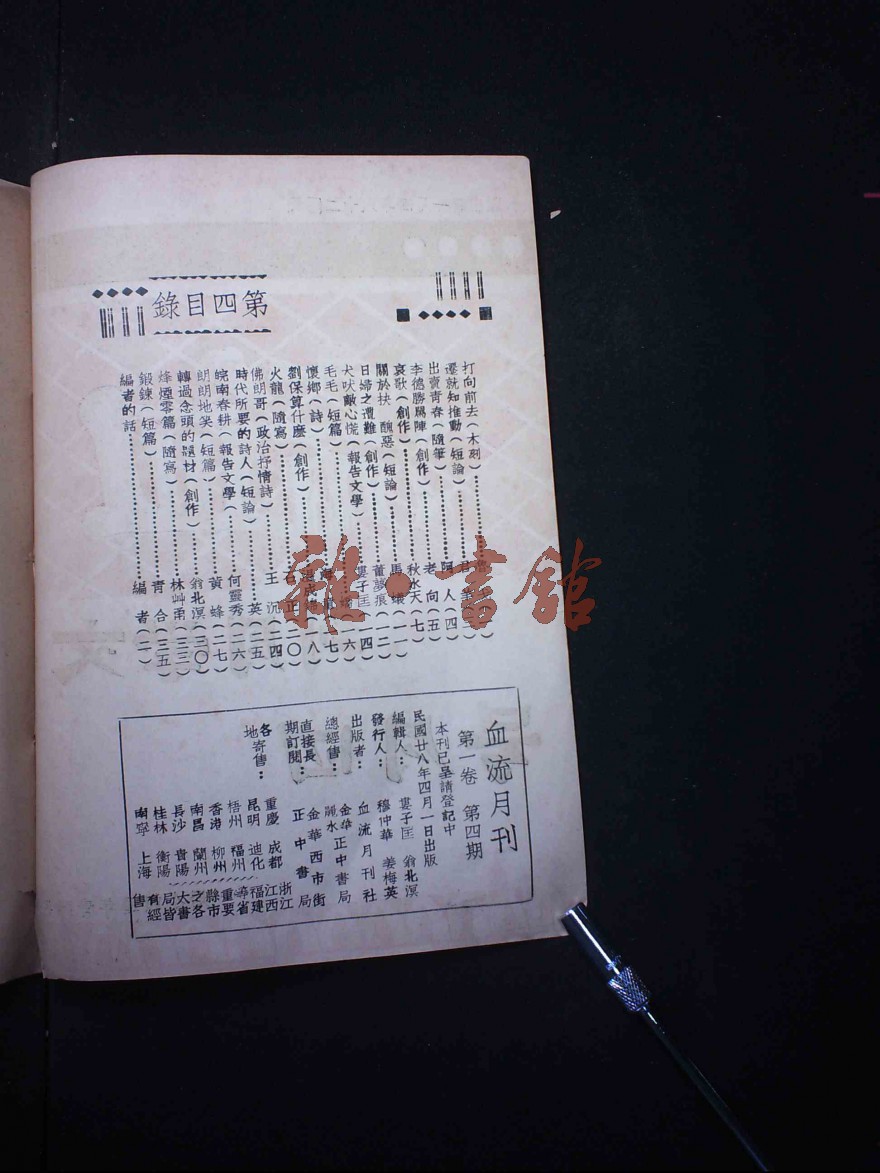 第四目錄
打向前去（木刻）
遷就知推動（短論）
出賣青春（隨筆）……阿人（四）
李德勝佈陣（創作）……老向（五）
哀歌（創作）……秋水天（七）
關於抉醜惡（短論）……馬蟻（一一）
日婦之遭難（創作）……董夢痕（一二）
犬吠敵心慌（報告文學）……婁子匡（一四）
毛毛（短篇）……（一六）
懷鄉（詩）……（一七）
劉保算什麽（創作）……（一八）
火龍（隨寫）……（二〇）
佛朗哥（政治抒情詩）……王沉（二四）
時代所要的詩人（短論）……英（二五）
皖南春耕（報告文學）……何靈秀（二六）
朗朗地笑（短篇）……黃蜂（二七）
轉過念頭的題材（創作）……翁北溟（三〇）
烽煙零篇（隨寫）……林艸甭（三三）
鍛鍊（短篇）……青合（三五）
編者的話……編者（二）
血流月刊
第一卷 第四期
本刊已呈請登記中
民國廿八年四月一日出版
編輯人：婁子匡 翁北溟
發行人：穆仲華 姜梅英
出版者：血流月刊社
總經售：金華正中書局
麗水
直接長期訂閱：金華西市街正中書局
各地寄售：
重慶 成都
昆明 迪化
梧州 福州
香港 柳州
南昌 蘭州
長沙 貴陽
桂林 衡陽
南寧 上海
浙江
江西
福建
等省
重要
縣市
之各
大書
局皆
有經
售
雜·書館